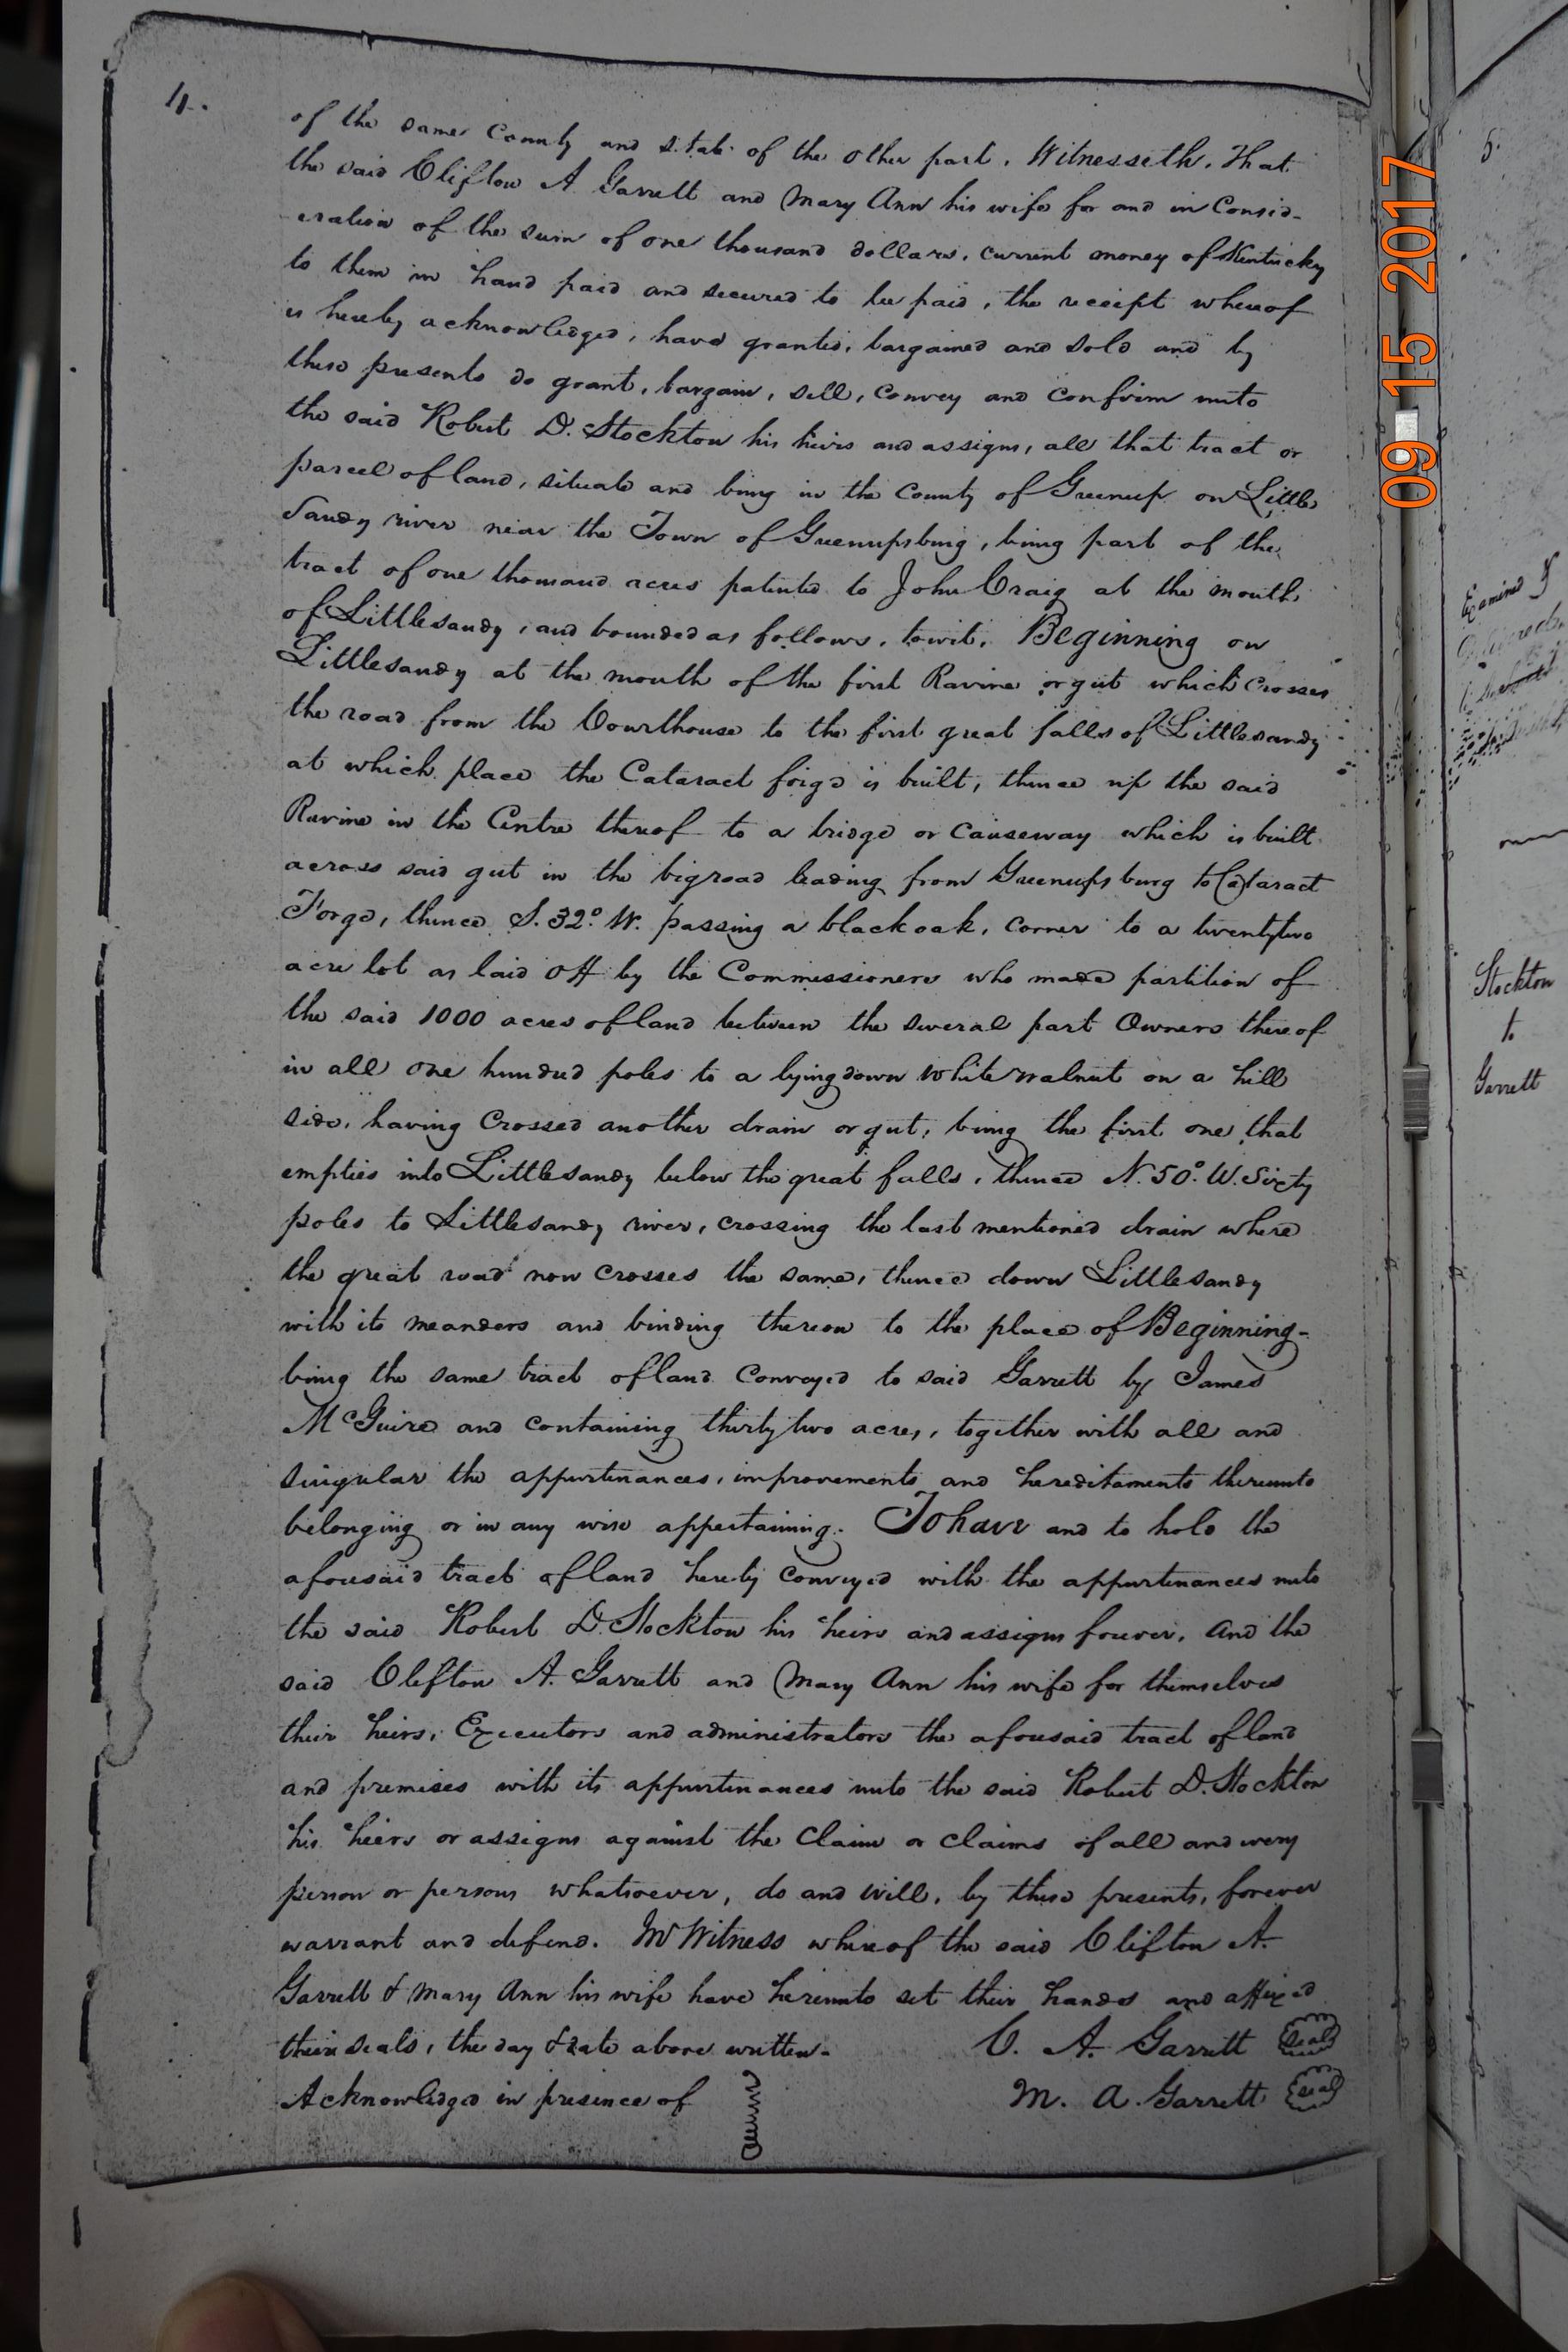 4.
of the same County and State of the other part. Witnesseth, That
the said Clifton A Garrett and Mary Ann his wife for and in Consid-
eration of the sum of one thousand dollars, current money of Kentucky
to them in hand paid and secured to be paid, the receipt whereof
is hereby acknowledged, have granted, bargained and sold and by
these presents do grant, bargain, sell, convey and confirm unto
the said Robert D. Stockton his heirs and assigns, all that tract or
parcel of land, situate and being in the County of Greenup on Little
Sandy river near the Town of Greenupsburg, being part of the
tract of one thousand acres patented to John Craig at the mouth
of Littlesandy, and bounded as follows, towit, Beginning on
Littlesandy at the mouth of the first Ravine or gut which crosses
the road from the Courthouse to the first great falls of Littlesandy
at which place the Cataract forge is built, thence up the said
Ravine in the Centre thereof to a bridge or causeway which is built
across said gut in the bigroad leading from Greenupsburg to Cataract
Forge, thence S. 32° W. passing a black oak, corner to a twentytwo
acre lot as laid off by the Commissioners who made partition of
the said 1000 acres of land between the several part Owners thereof
in all one hundred poles to a lying down white walnut on a hill
side, having crossed another drain or gut, being the first one that
empties into Littlesandy below the great falls, thence N. 50° W. Sixty
poles to Littlesandy river, crossing the last mentioned drain where
the great road now crosses the same, thence down Littlesandy
with its meanders and binding thereon to the place of Beginning-
being the same tract of land conveyed to said Garrett by James
McGuire and containing thirty two acres, together with all and
singular the appurtenances, improvements and hereditaments thereunto
belonging or in any wise appertaining. To have and to hold the
aforesaid tract of land hereby conveyed with the appurtenances unto
the said Robert D. Stockton his heirs and assigns forever, And the
said Clifton A. Garrett and Mary Ann his wife for themselves
their heirs, Executors and administrators the aforesaid tract of land
and premises with its appurtenances unto the said Robert D. Stockton
his heirs or assigns against the Claim or claims of all and every
person or persons whatsoever, do and will, by these presents, forever
warrant and defend. In Witness whereof the said Clifton A.
Garrett & Mary Ann his wife have hereunto set their hands and affixed
their seals, the day & date above written-
C. A. Garrett Seal
Acknowledged in presence of
M. A. Garrett Seal
09 15 2017
5.
Examined &
Stockton
to
Garrett